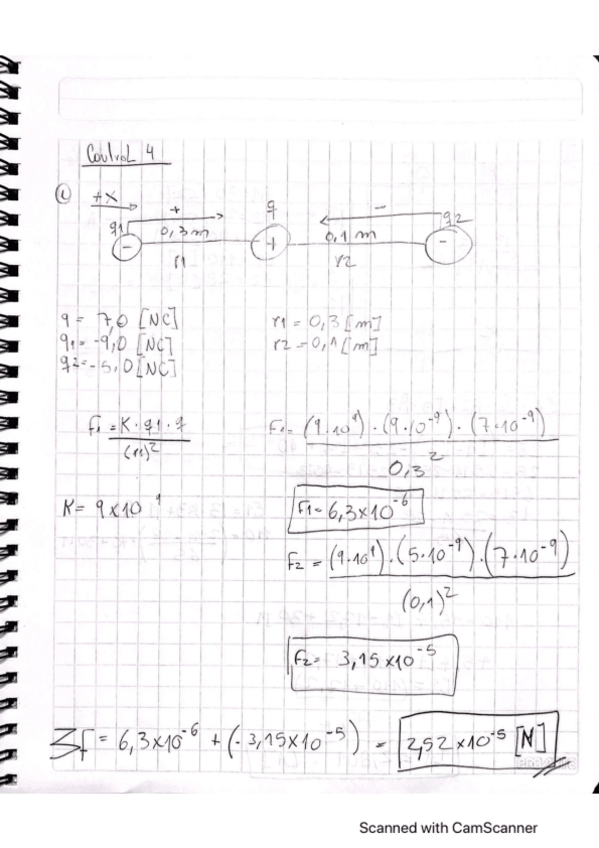 Control 4
① +X
+ q - q2
q1 0,3m 0,1 m
- + -
r1 r2
q = 7,0 [NC] r1 = 0,3 [m]
q1 = -9,0 [NC] r2 = 0,1 [m]
q2 = -5,0 [NC]
F1 = K · q1 · q F1 = (9·10⁹) · (9·10⁻⁹) · (7·10⁻⁹)
(r1)² 0,3²
K = 9x10⁹ F1 = 6,3x10⁻⁶
F2 = (9·10⁹) · (5·10⁻⁹) · (7·10⁻⁹)
(0,1)²
F2 = 3,15x10⁻⁵
Σf = 6,3x10⁻⁶ + (-3,15x10⁻⁵) = 2,52x10⁻⁵ [N]
Scanned with CamScanner